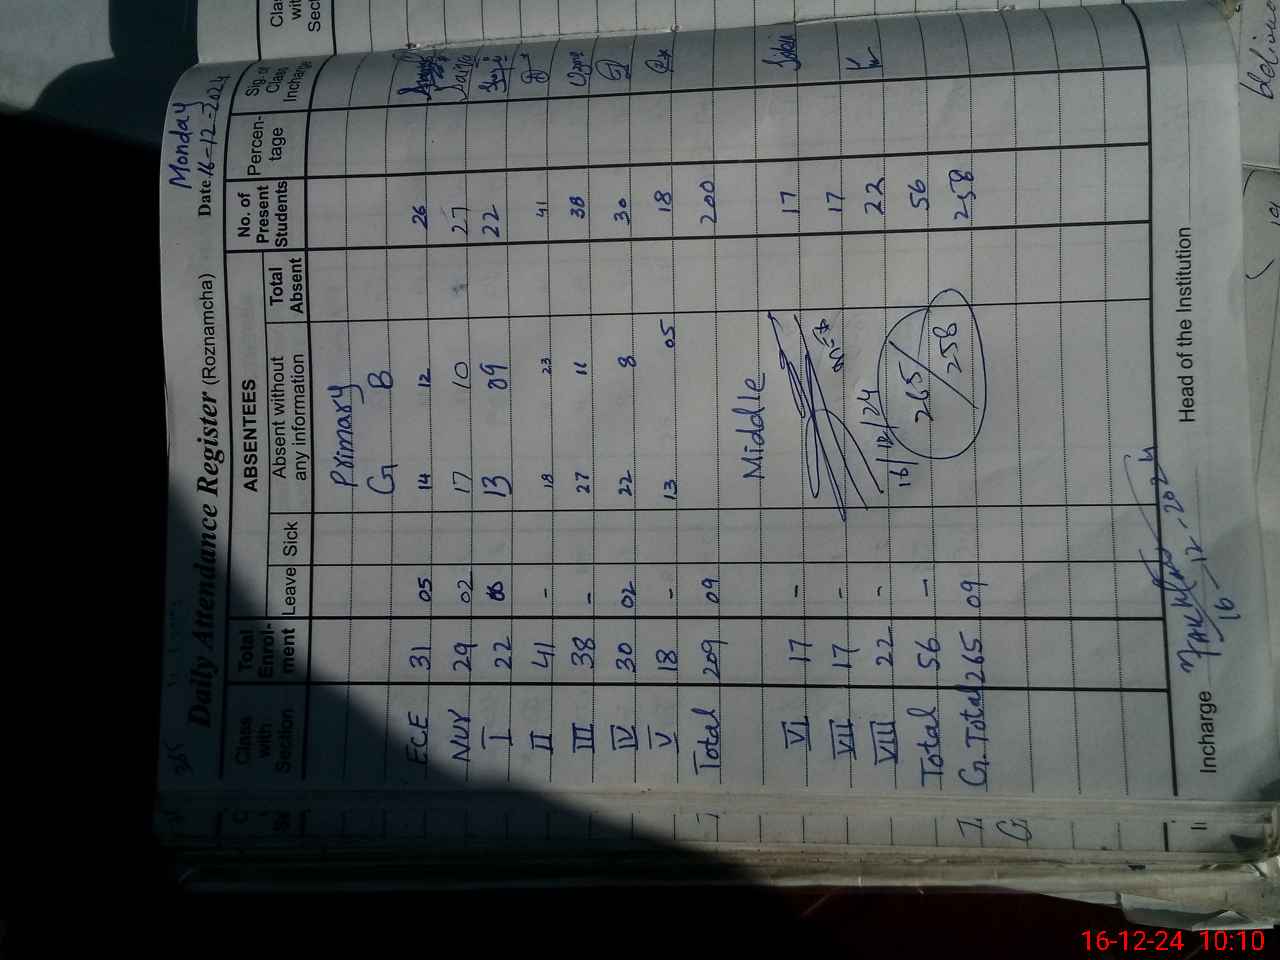 Monday
Daily Attendance Register (Roznamcha) Date 16-12-2024
Class with Section Total Enrol-ment ABSENTEES No. of Present Students Percen-tage Sig. of Class Incharge
Leave Sick Absent without any information Total Absent
Primary
G B
ECE 31 05 14 12 26
NUR 29 02 17 10 27
I 22 13 09 22
II 41 - 18 23 41
III 38 - 27 11 38
IV 30 02 22 8 30
V 18 - 13 05 18
Total 209 09 200
Middle
VI 17 - 17
VII 17 - 17
VIII 22 - 22
16/12/24
Total 56 - 265/ 56
G. Total 265 09 258 258
Incharge 16-12-2024 Head of the Institution
16-12-24 10:10